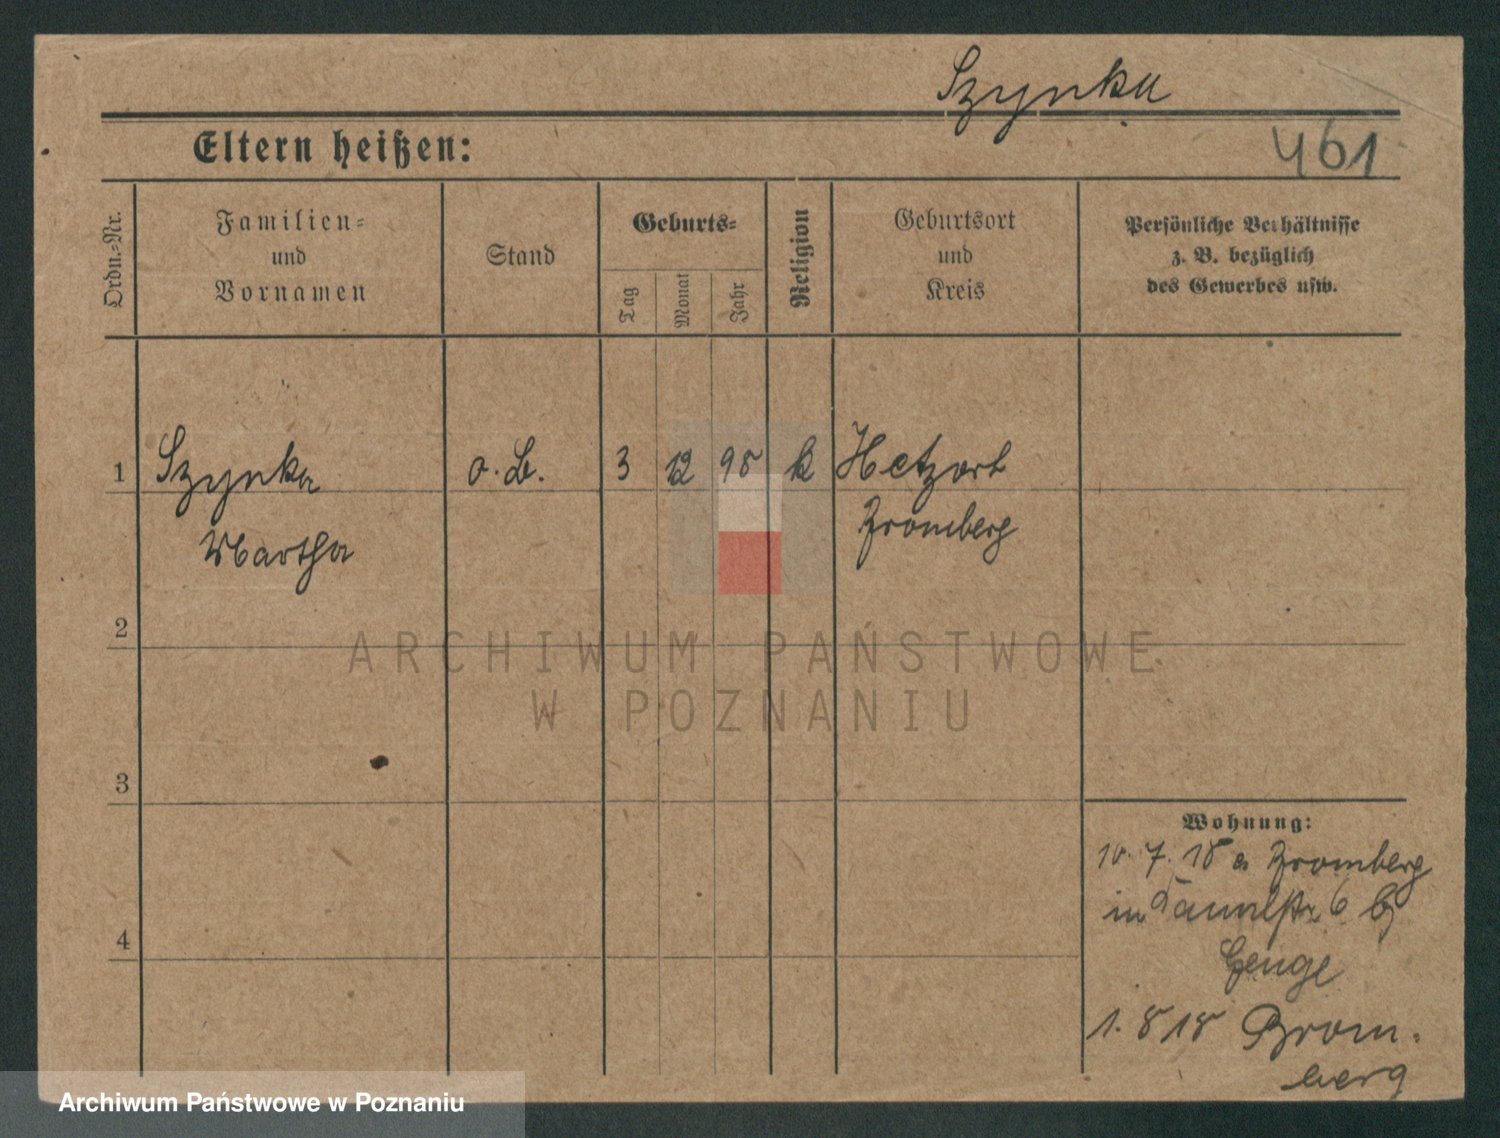 Szynka
461
Eltern heißen:
Ordn.-Nr.
Familien-
und
Vornamen
Stand
Geburts-
Tag
Monat
Jahr
Religion
Geburtsort
und
Kreis
Persönliche Verhältnisse
z. B. bezüglich
des Gewerbes usw.
1
Szynka
Martha
o. B.
3
12
98
k
Hetzort
Bromberg
2
ARCHIWUM PAŃSTWOWE
W POZNANIU
3
4
Wohnung:
10. 7. 18 a Bromberg
in 6 bj
Genge
1. 8 18 Brom.
berg
Archiwum Państwowe w Poznaniu